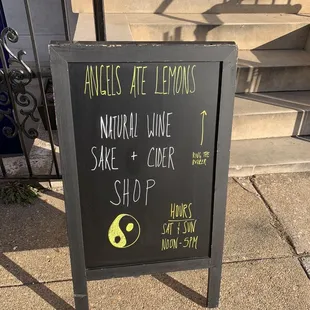 ANGELS ATE LEMONS
NATURAL WINE
SAKE + CIDER
SHOP
RING THE
BUZZER
HOURS
SAT + SUN
NOON-5PM